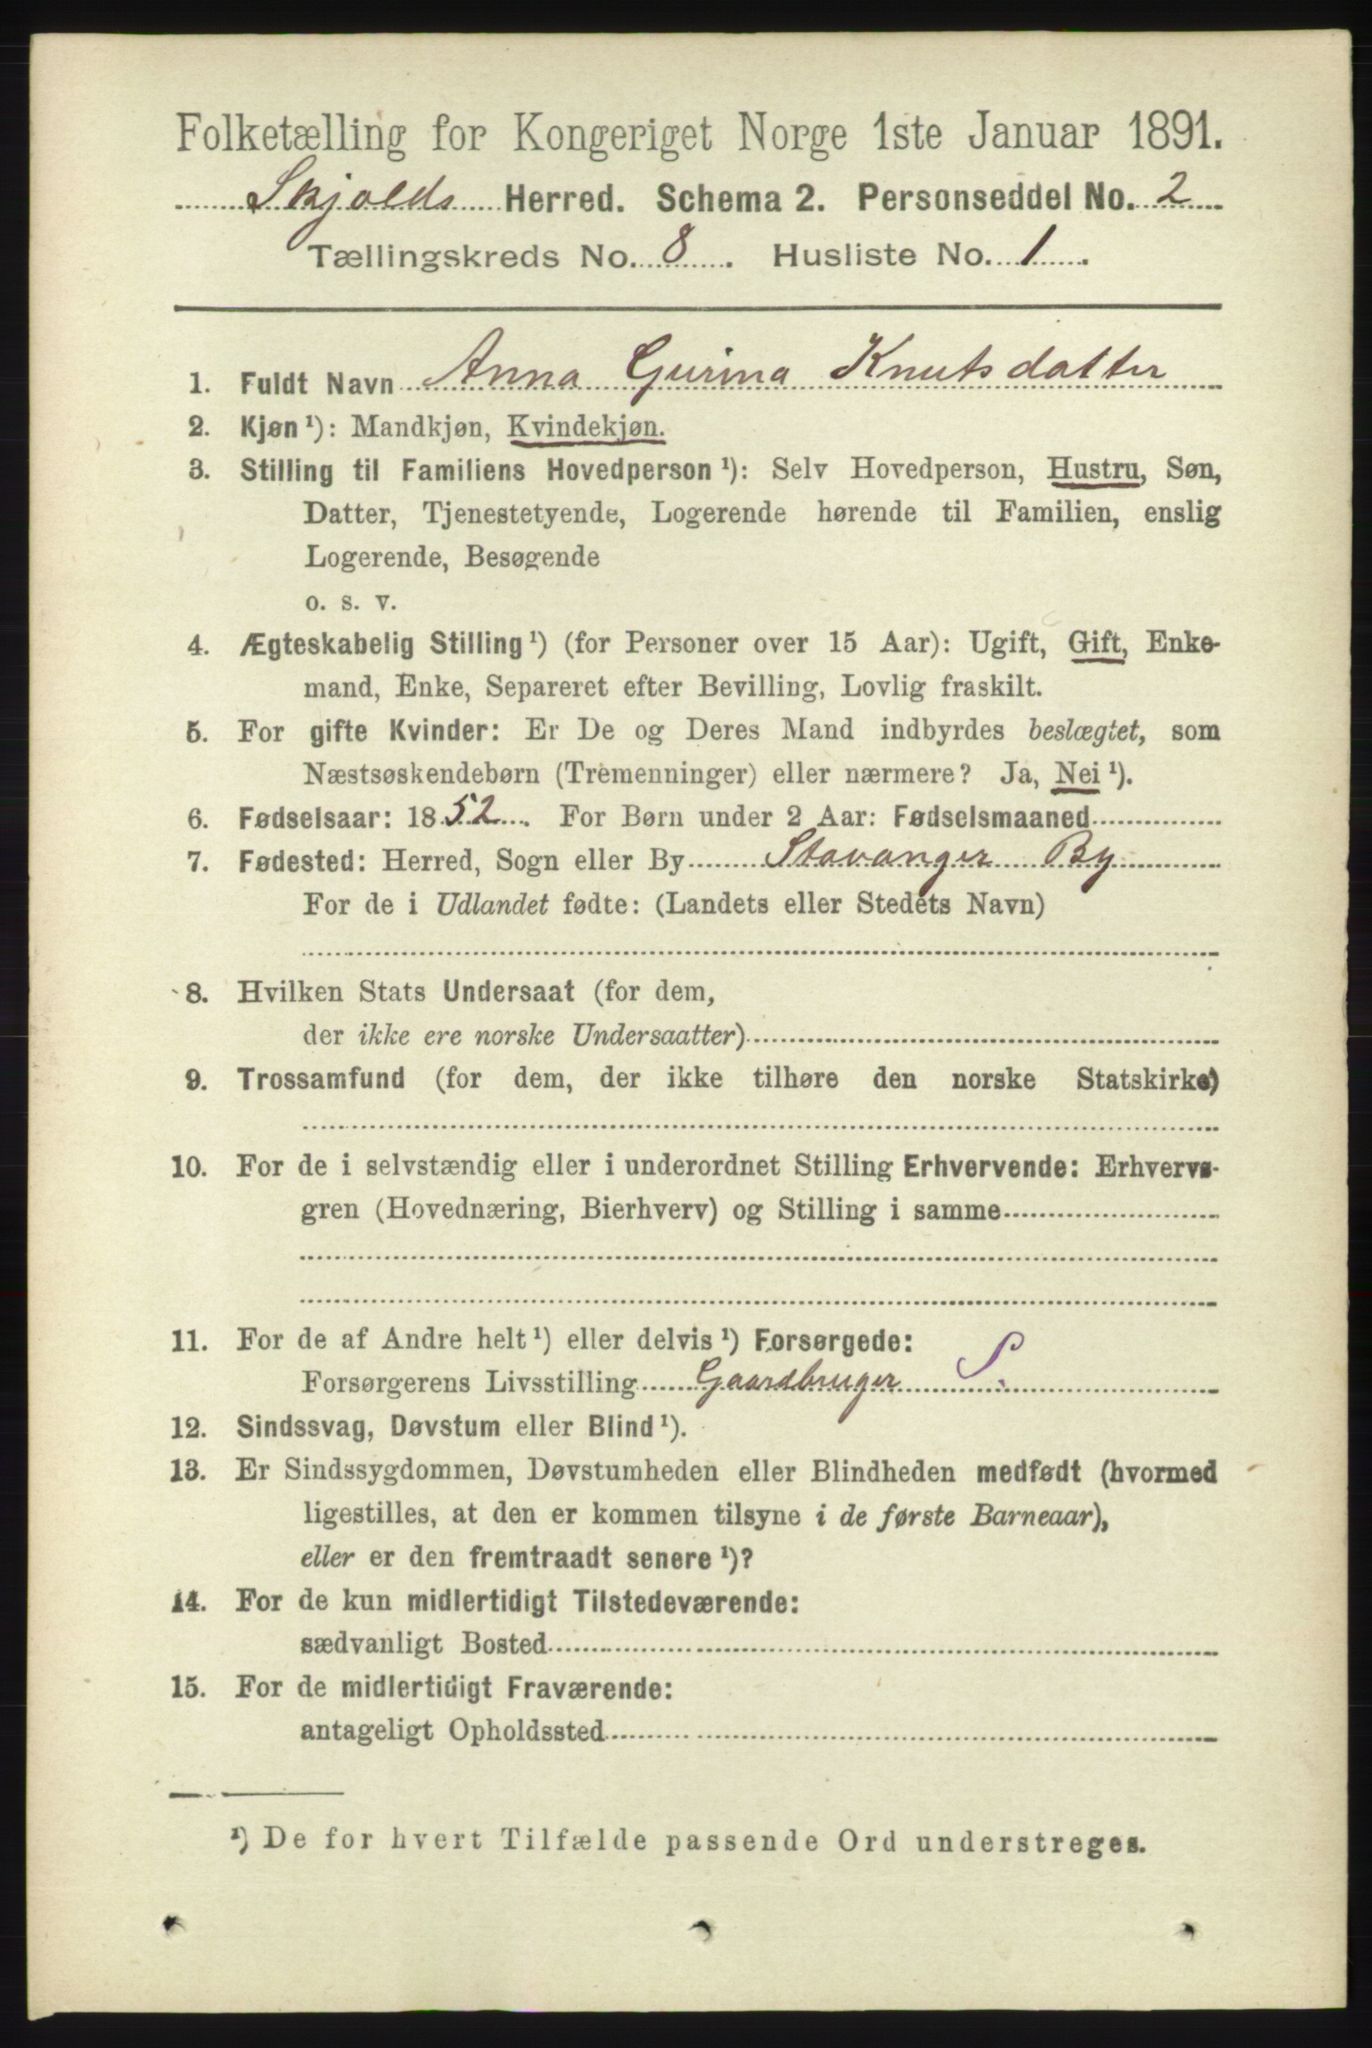 Folketælling for Kongeriget Norge 1ste Januar 1891.
Skjolds Herred. Schema 2. Personseddel No. 2
Tællingskreds No. 8. Husliste No. 1.
1. Fuldt Navn Anna Gurina Knutsdatter
2. Kjøn ¹): Mandkjøn, Kvindekjøn.
3. Stilling til Familiens Hovedperson ¹): Selv Hovedperson, Hustru, Søn,
Datter, Tjenestetyende, Logerende hørende til Familien, enslig
Logerende, Besøgende
o. s. v.
4. Ægteskabelig Stilling ¹) (for Personer over 15 Aar): Ugift, Gift, Enke-
mand, Enke, Separeret efter Bevilling, Lovlig fraskilt.
5. For gifte Kvinder: Er De og Deres Mand indbyrdes beslægtet, som
Næstsøskendebørn (Tremenninger) eller nærmere? Ja, Nei ¹).
6. Fødselsaar: 1852. For Børn under 2 Aar: Fødselsmaaned
7. Fødested: Herred, Sogn eller By Stavanger By
For de i Udlandet fødte: (Landets eller Stedets Navn)
8. Hvilken Stats Undersaat (for dem,
der ikke ere norske Undersaatter)
9. Trossamfund (for dem, der ikke tilhøre den norske Statskirke)
10. For de i selvstændig eller i underordnet Stilling Erhvervende: Erhvervs-
gren (Hovednæring, Bierhverv) og Stilling i samme
11. For de af Andre helt ¹) eller delvis ¹) Forsørgede:
Forsørgerens Livsstilling Gaardbruger S.
12. Sindssvag, Døvstum eller Blind ¹).
13. Er Sindssygdommen, Døvstumheden eller Blindheden medfødt (hvormed
ligestilles, at den er kommen tilsyne i de første Barneaar),
eller er den fremtraadt senere ¹)?
14. For de kun midlertidigt Tilstedeværende:
sædvanligt Bosted
15. For de midlertidigt Fraværende:
antageligt Opholdssted
¹) De for hvert Tilfælde passende Ord understreges.